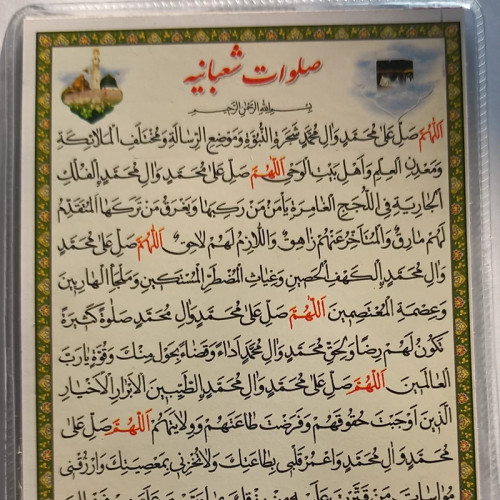 صلوات شعبانیه
بِسْمِ اللهِ الرَّحْمنِ الرَّحیمِ
اَللّهُمَّ صَلِّ عَلى مُحَمَّدٍ وَالِ مُحَمَّدٍ شَجَرَةِ النُّبُوَّةِ وَمَوْضِعِ الرِّسالَةِ وَمُخْتَلَفِ الْمَلائِكَةِ
وَمَعْدِنِ الْعِلْمِ وَاَهْلِ بَیْتِ الْوَحْىِ اَللّهُمَّ صَلِّ عَلى مُحَمَّدٍ وَالِ مُحَمَّدٍ الْفُلْكِ
الْجارِیَةِ فِى اللُّجَجِ الْغامِرَةِ یَاْمَنُ مَنْ رَكِبَها وَیَغْرَقُ مَنْ تَرَكَهَا الْمُتَقَدِّمُ
لَهُمْ مارِقٌ وَالْمُتَاَخِّرُ عَنْهُمْ زاهِقٌ وَاللاّزِمُ لَهُمْ لاحِقٌ اَللّهُمَّ صَلِّ عَلى مُحَمَّدٍ
وَالِ مُحَمَّدٍ الْكَهْفِ الْحَصینِ وَغِیاثِ الْمُضْطَرِّ الْمُسْتَكینِ وَمَلْجَاِ الْهارِبینَ
وَعِصْمَةِ الْمُعْتَصِمینَ اَللّهُمَّ صَلِّ عَلى مُحَمَّدٍ وَالِ مُحَمَّدٍ صَلوةً كَثیرَةً
تَكُونُ لَهُمْ رِضاً وَلِحَقِّ مُحَمَّدٍ وَالِ مُحَمَّدٍ اَداءً وَقَضاءً بِحَوْلٍ مِنْكَ وَقُوَّةٍ یا رَبَّ
الْعالَمینَ اَللّهُمَّ صَلِّ عَلى مُحَمَّدٍ وَالِ مُحَمَّدٍ الطَّیِّبینَ الاَْبْرارِ الاَْخْیارِ
الَّذینَ اَوْجَبْتَ حُقُوقَهُمْ وَفَرَضْتَ طاعَتَهُمْ وَوِلایَتَهُمْ اَللّهُمَّ صَلِّ عَلى
مُحَمَّدٍ وَالِ مُحَمَّدٍ وَاعْمُرْ قَلْبى بِطاعَتِكَ وَلا تُخْزِنى بِمَعْصِیَتِكَ وَارْزُقْنى